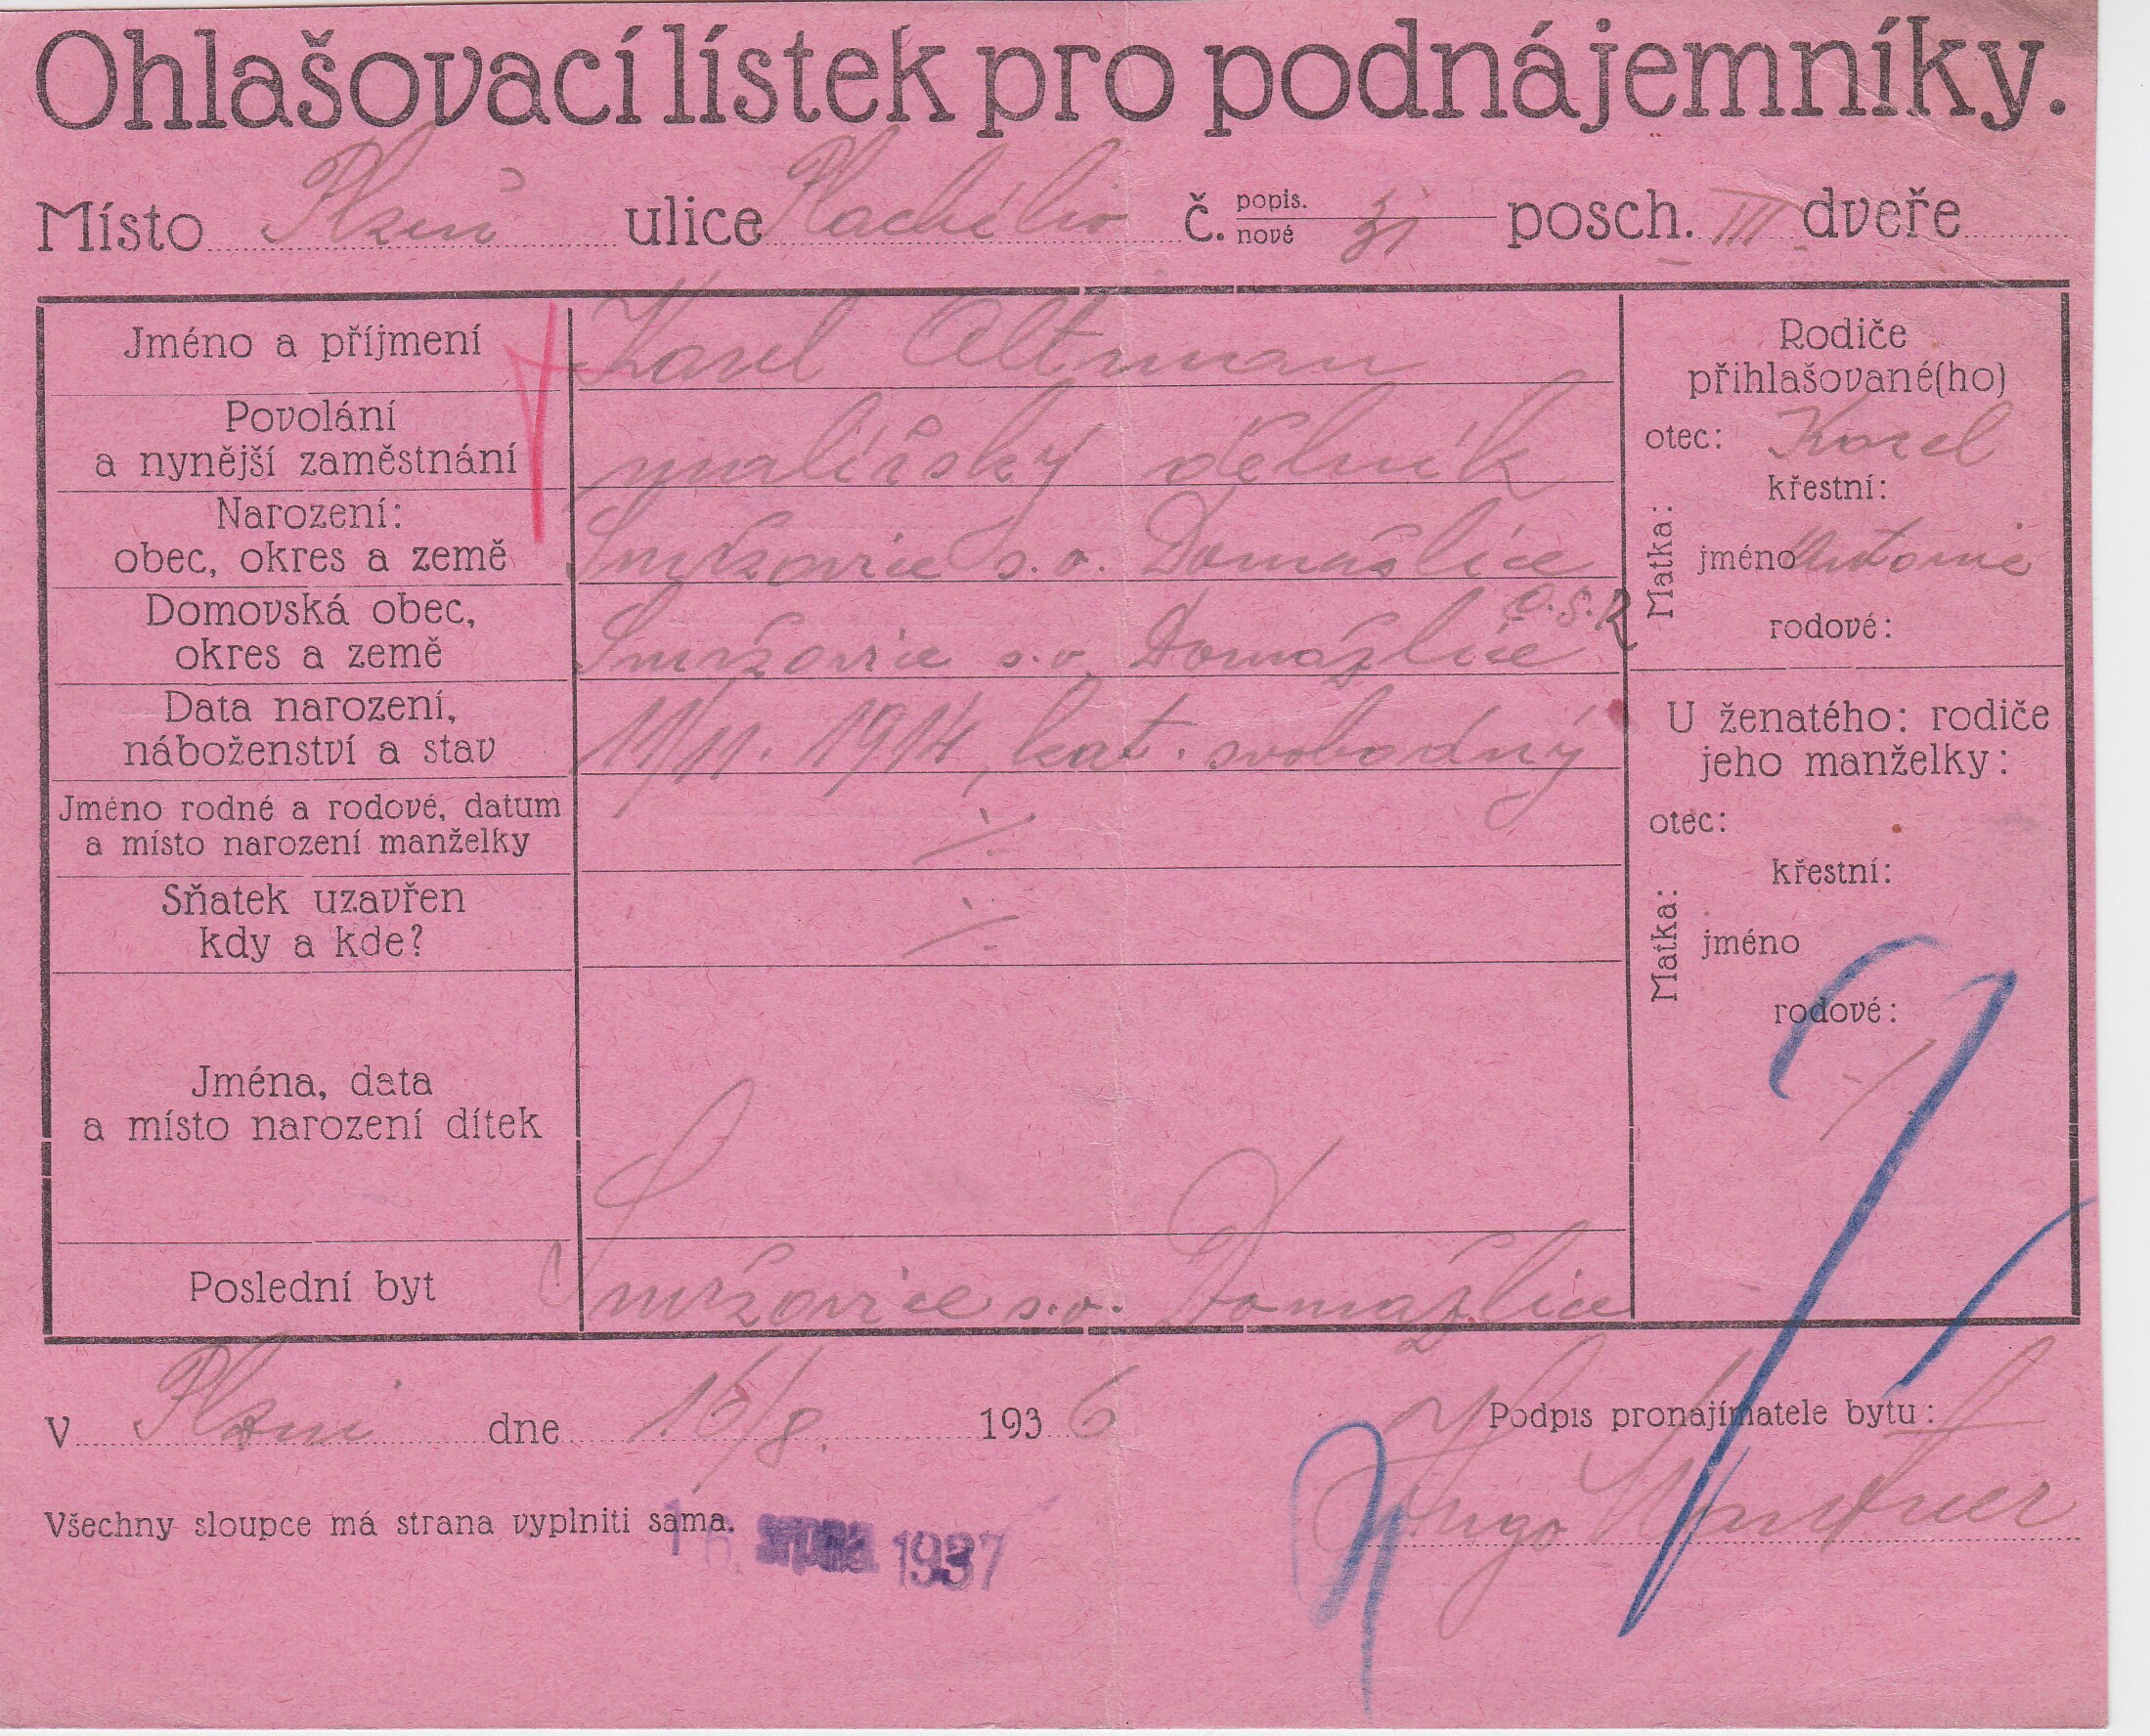 Ohlašovací lístek pro podnájemníky.
Místo Plzeň ulice Plachého č. popis. nové 31 posch. III dveře
Jméno a příjmení Karel Altman
Povolání
a nynější zaměstnání malířský dělník
Narození:
obec, okres a země Smržovice s.o. Domažlice
Domovská obec,
okres a země Smržovice s.o. Domažlice č.s.R
Data narození,
náboženství a stav 11/11. 1914, kat. svobodný
Jméno rodné a rodové, datum
a místo narození manželky ·/.
Sňatek uzavřen
kdy a kde? ·/.
Jména, data
a místo narození dítek
Poslední byt Smržovice s.o. Domažlice
Rodiče
přihlašované(ho)
otec: Karel
Matka:
křestní:
jméno Antonie
rodové:
U ženatého: rodiče
jeho manželky:
otec:
Matka:
křestní:
jméno
rodové:
V Plzni dne 16/8. 1936
Podpis pronajímatele bytu:
Hugo
Všechny sloupce má strana vyplniti sama.
16. srpna 1937